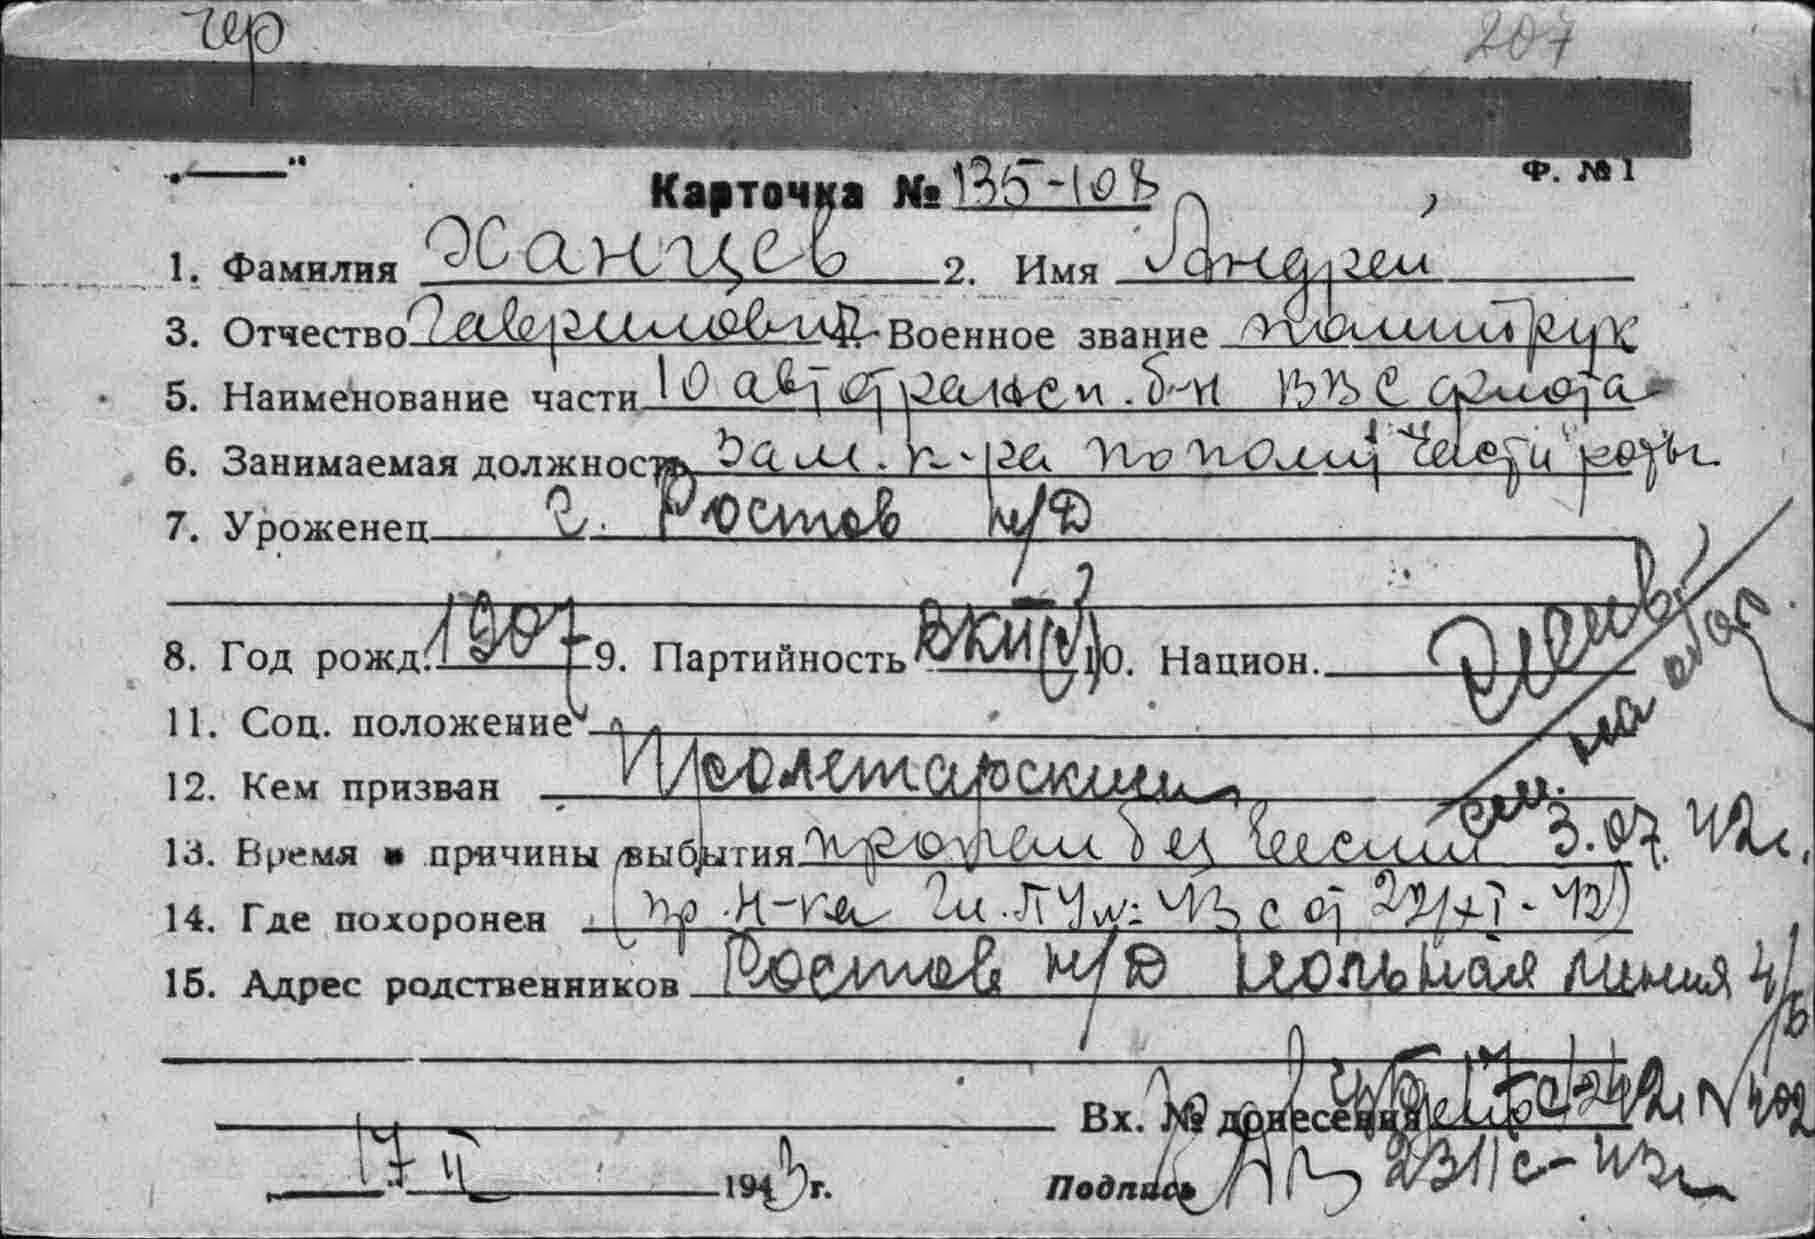 чер
207
„——"
Ф. № 1
Карточка № 135-108
1. Фамилия Ханцев 2. Имя Андрей
3. Отчество Гаврилович 4. Военное звание политрук
5. Наименование части 10 автотрансп. б-н ВВС флота
6. Занимаемая должность зам. к-ра по полит части роты
7. Уроженец г. Ростов н/Д
8. Год рожд. 1907 9. Партийность ВКП(б) 10. Национ.
см. на обор.
11. Соц. положение
12. Кем призван Пролетарским
13. Время и причины выбытия пропал без вести 3.07.42г.
14. Где похоронен (пр. Н-ка Гл. ПУ
15. Адрес родственников Ростов н/Д линия
Вх. № донесения
17 II 1943 г. Подпись